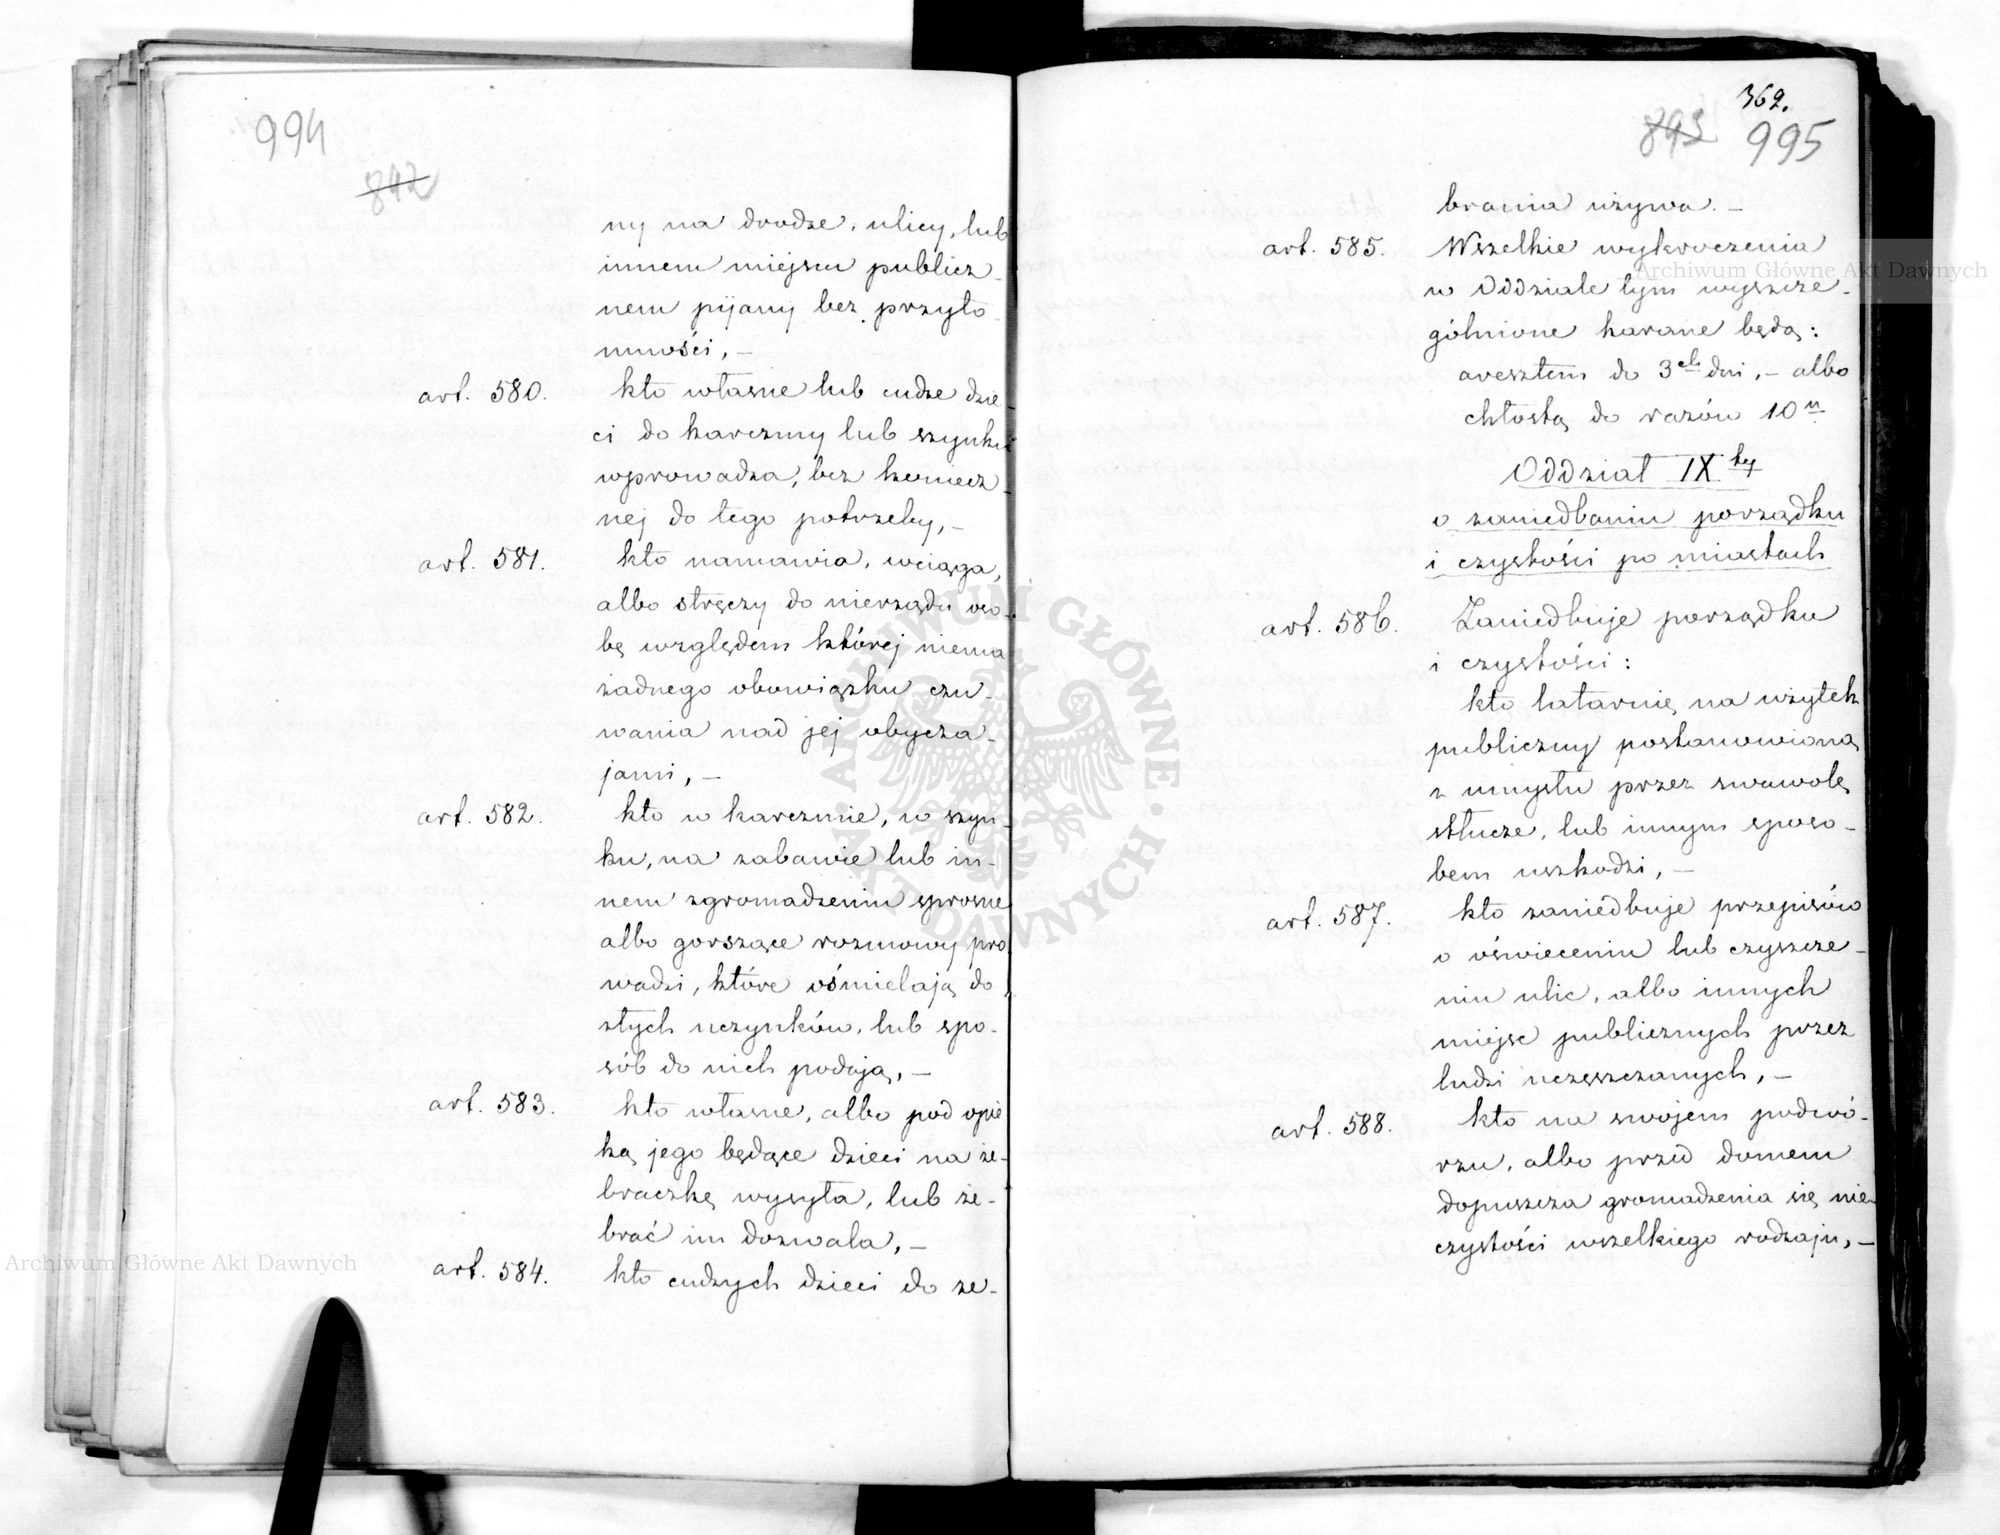 994
842
ny na drodze, ulicy, lub
innem miejscu publicz-
nem pijany bez przyto-
mności, –
art. 580. kto własne lub cudze dzie-
ci do karczmy lub szynku
wprowadza, bez koniecz-
nej do tego potrzeby, –
art. 581. kto namawia, wciąga,
albo stręczy do nierządu oso-
bę względem której niema
żadnego obowiązku czu-
wania nad jej obycza-
jami, –
art. 582. kto w karczmie, w szyn-
ku, na zabawie lub in-
nem zgromadzeniu sprosne
albo gorszące rozmowy pro-
wadzi, które ośmielają do
złych uczynków, lub spo-
sób do nich podają, –
art. 583. kto własne, albo pod opie-
ką jego będące dzieci na że-
braczkę wysyła, lub że-
brać im dozwala, –
art. 584. kto cudzych dzieci do że-
362.
843 995
brania używa. –
art. 585. Wszelkie wykroczenia
w Oddziale tym wyszcze-
gólnione karane będą:
aresztem do 3ch dni, – albo
chłostą do razów 10u
Oddział IXty
o zaniedbaniu porządku
i czystości po miastach
art. 586. Zaniedbuje porządku
i czystości:
kto latarnię na użytek
publiczny postanowioną
z umysłu przez swawolę
stłucze, lub innym sposo-
bem uszkodzi, –
art. 587. kto zaniedbuje przepisów
o oświeceniu lub czyszcze-
niu ulic, albo innych
miejsc publicznych przez
ludzi uczęszczanych, –
art. 588. kto na swojem podwó-
rzu, albo przed domem
dopuszcza gromadzenia się nie-
czystości wszelkiego rodzaju, –
Archiwum Główne Akt Dawnych
Archiwum Główne Akt Dawnych
ARCHIWUM GŁÓWNE AKT DAWNYCH